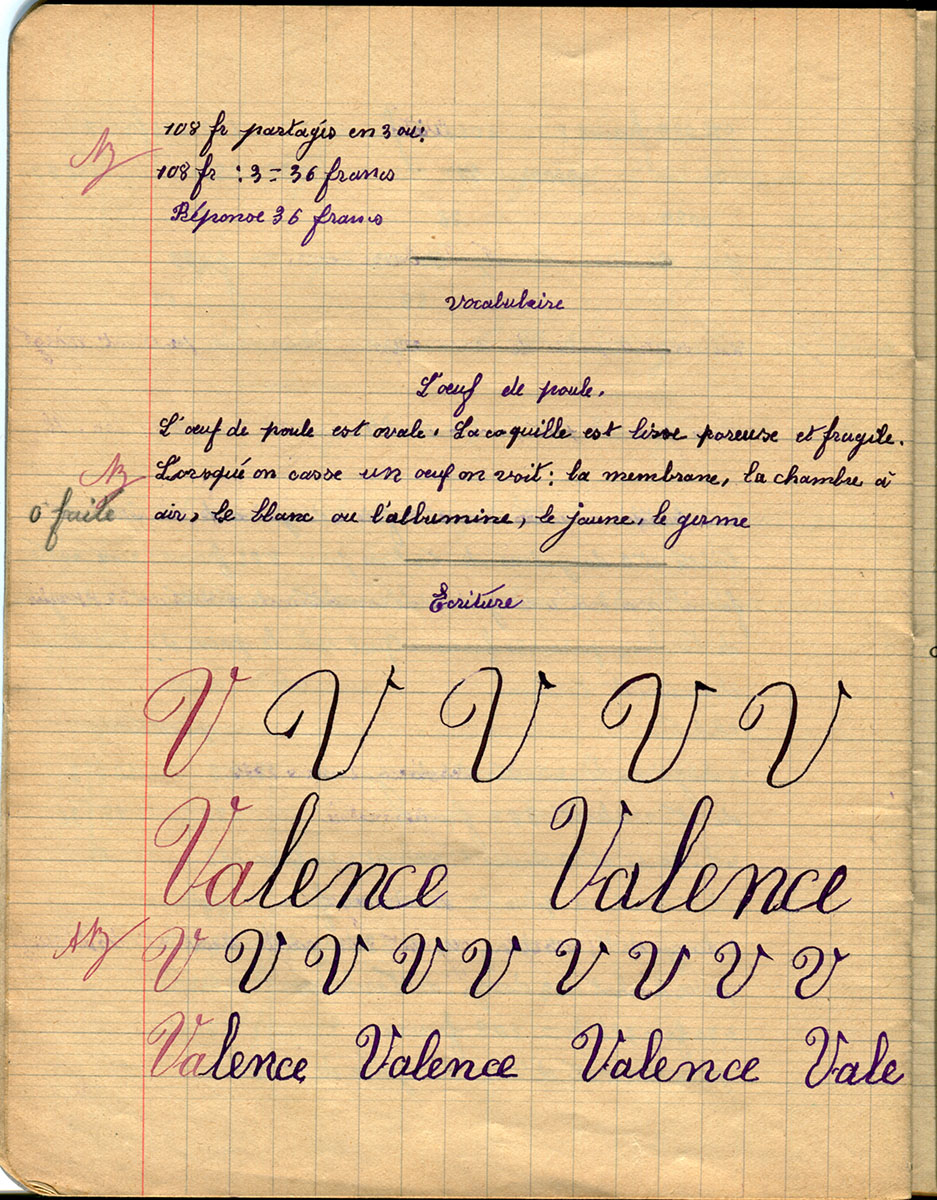 108 fr partagés en 3 ou:
108 fr : 3 = 36 francs
Réponse 36 francs
Vocabulaire
L'œuf de poule.
L'œuf de poule est ovale. La coquille est lisse poreuse et fragile.
Lorsqué on casse un œuf on voit: la membrane, la chambre à
air, le blanc ou l'albumine, le jaune, le germe
0 faute
Ecriture
V V V V V
Valence Valence
V V V V V V V V V
Valence Valence Valence Vale